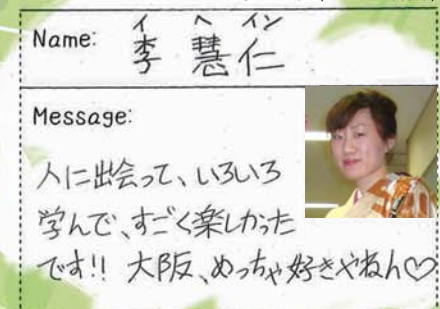 Name:
イ ヘ イン
李 慧仁
Message:
人に出会って、いろいろ
学んで、すごく楽しかった
です!! 大阪、めっちゃ好きやねん♡